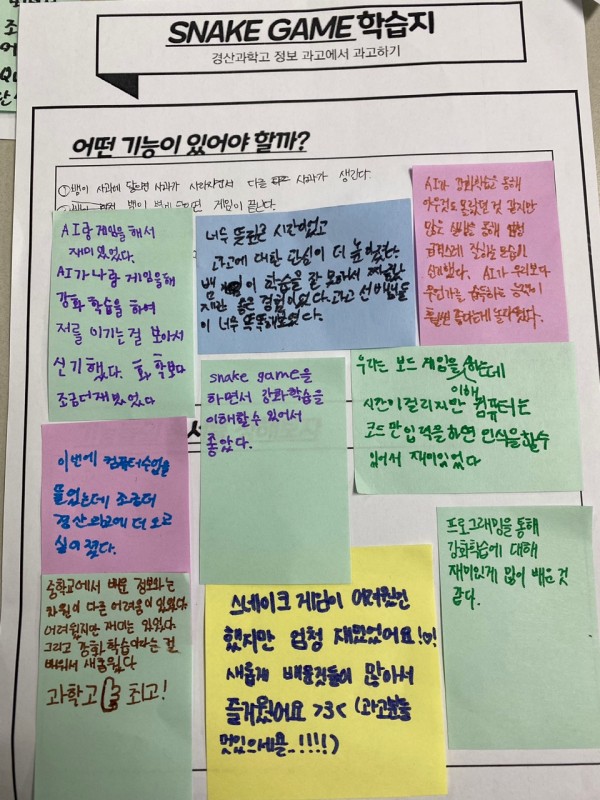 SNAKE GAME 학습지
경산과학고 정보 과고에서 과고하기
어떤 기능이 있어야 할까?
① 뱀이 사과에 닿으면 사과가 사라지면서 다른 사과가 생긴다.
뱀이 벽에 닿으면 게임이 끝난다.
AI랑 게임을 해서
재미있었다.
AI가 나랑 게임을 해
강화 학습을 하여
저를 이기는 걸 보아서
신기했다. 화학보다
조금 더 재밌었다
너무 뜻깊은 시간이었고
과고에 대한 관심이 더 높아졌다.
뱀 게임이 학습을 잘 못해서
좋은 경험이었다. 과고 선배님들
이 너무 똑똑해보였다.
AI가 강화학습을 통해
아무것도 몰랐던 것 같지만
많은 실행을 통해 엄청
급격스레 잘하는 모습이
신기했다. AI가 우리보다
무언가를 습득하는 능력이
훨씬 좋다는게 놀라웠다.
snake game을
하면서 강화학습을
이해할 수 있어서
좋았다.
우리는 보드 게임을 하는데
이해
시간이 걸리지만 컴퓨터는
코드만 입력을 하면 인식을 할 수
있어서 재미있었다
이번에 컴퓨터수업을
들었는데 조금더
경산과고에 더 오고
싶어졌다.
중학교에서 배운 정보와는
차원이 다른 어려움이 있었다.
어려웠지만 재미는 있었다.
그리고 강화학습이라는 걸
배워서 새로웠다
과학고 최고!
스네이크 게임이 어려웠긴
했지만 엄청 재밌었어요!♡!
새롭게 배운것들이 많아서
즐거웠어요 >3< (과고분들
멋있으세욤..!!!!)
프로그래밍을 통해
강화학습에 대해
재미있게 많이 배운 것
같다.